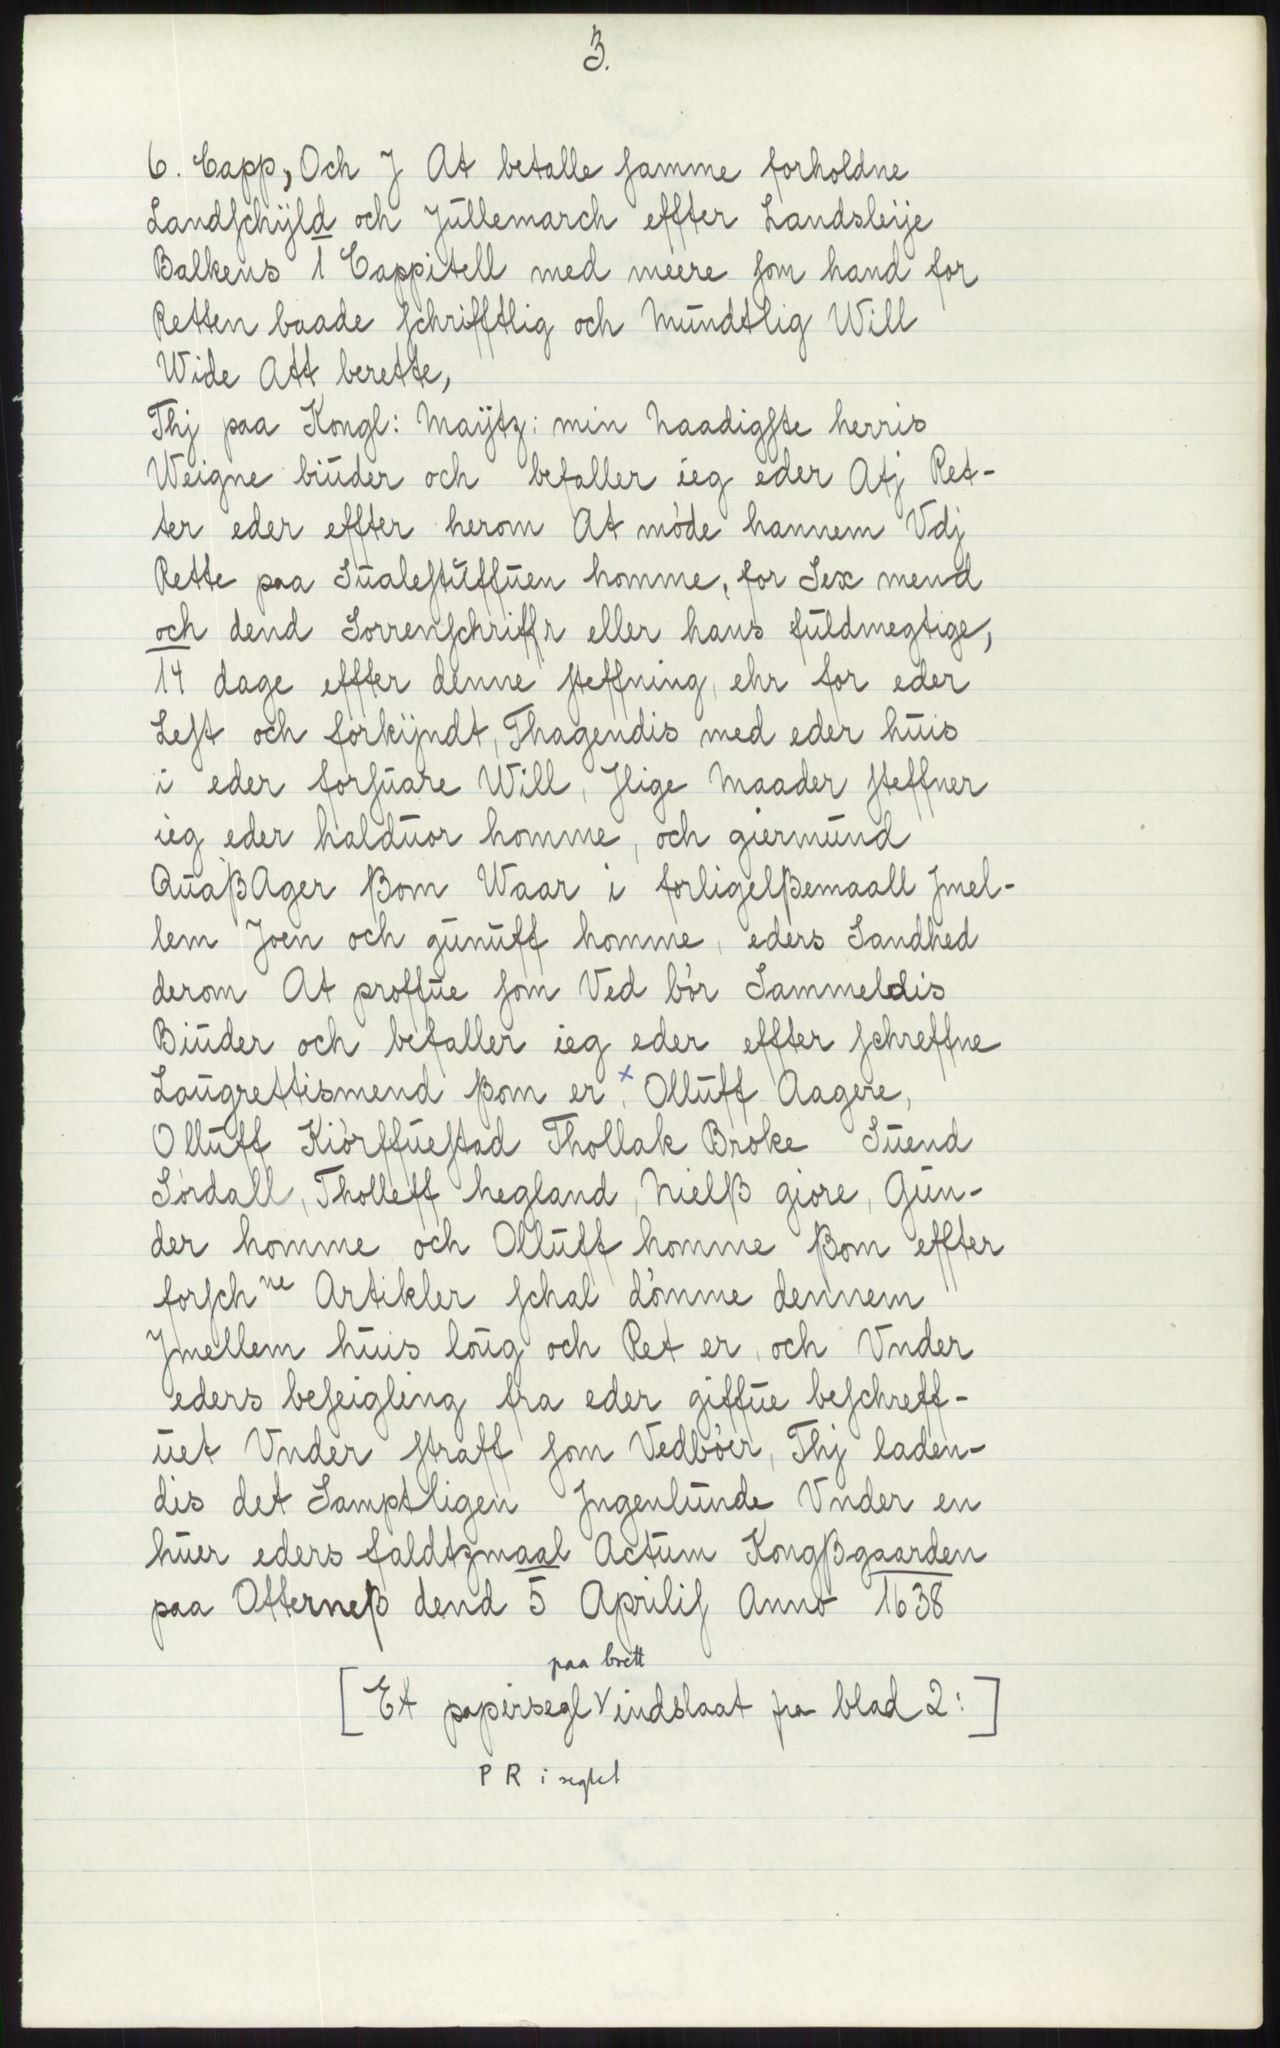 3.
6. Capp, Och J At betalle samme forholdne
Landschÿld och Jullemarch effter Landsleije
Balkens 1 Cappitell med meere som hand for
Retten baade schrifftlig och Mundtlig Will
Wide Att berette,
Thj paa Kongl: Maÿtz: min Naadigste herris
Weigne biuder och befaller ieg eder Atj Ret-
ter eder effter herom At møde hannem Vdj
Rette paa Sualestuffuen homme, for Sex mend
och dend Sorrenschriffr eller hans fuldmegtige,
14 dage effter denne steffning, ehr for eder
Lest och forkÿndt, Thagendis med eder huis
i eder forsuare Will, Jlige Maader steffner
ieg eder halduor homme, och giermund
QuaßAger ßom Waar i forligelßemaall Jmel-
lem Joen och gunuff homme, eders Sandhed
derom At proffue som Ved bør Sammeledis
Biuder och befaller ieg eder effter schreffne
Laugrettismend ßom er, x Olluff Aagere,
Olluff Kiørffuestad Thollak Broke Suend
Sordall, Tholleff hegland, Nielß giore, Gun-
der homme och Olluff homme ßom effter
forschne Artikler schal dømme dennem
Jmellem huis loug och Ret er, och Vnder
eders beseigling fra eder giffue beschreff-
uet Vnder straff som Vedbøer, Thj laden-
dis det Samptligen Jngenlunde Vnder en
huer eders faldtzmaal Actum Kongßgaarden
paa Otterneß dend 5 Aprilis Anno 1638
paa brett
[Et papirsegl V indslaat fra blad 2:]
P R i seglet